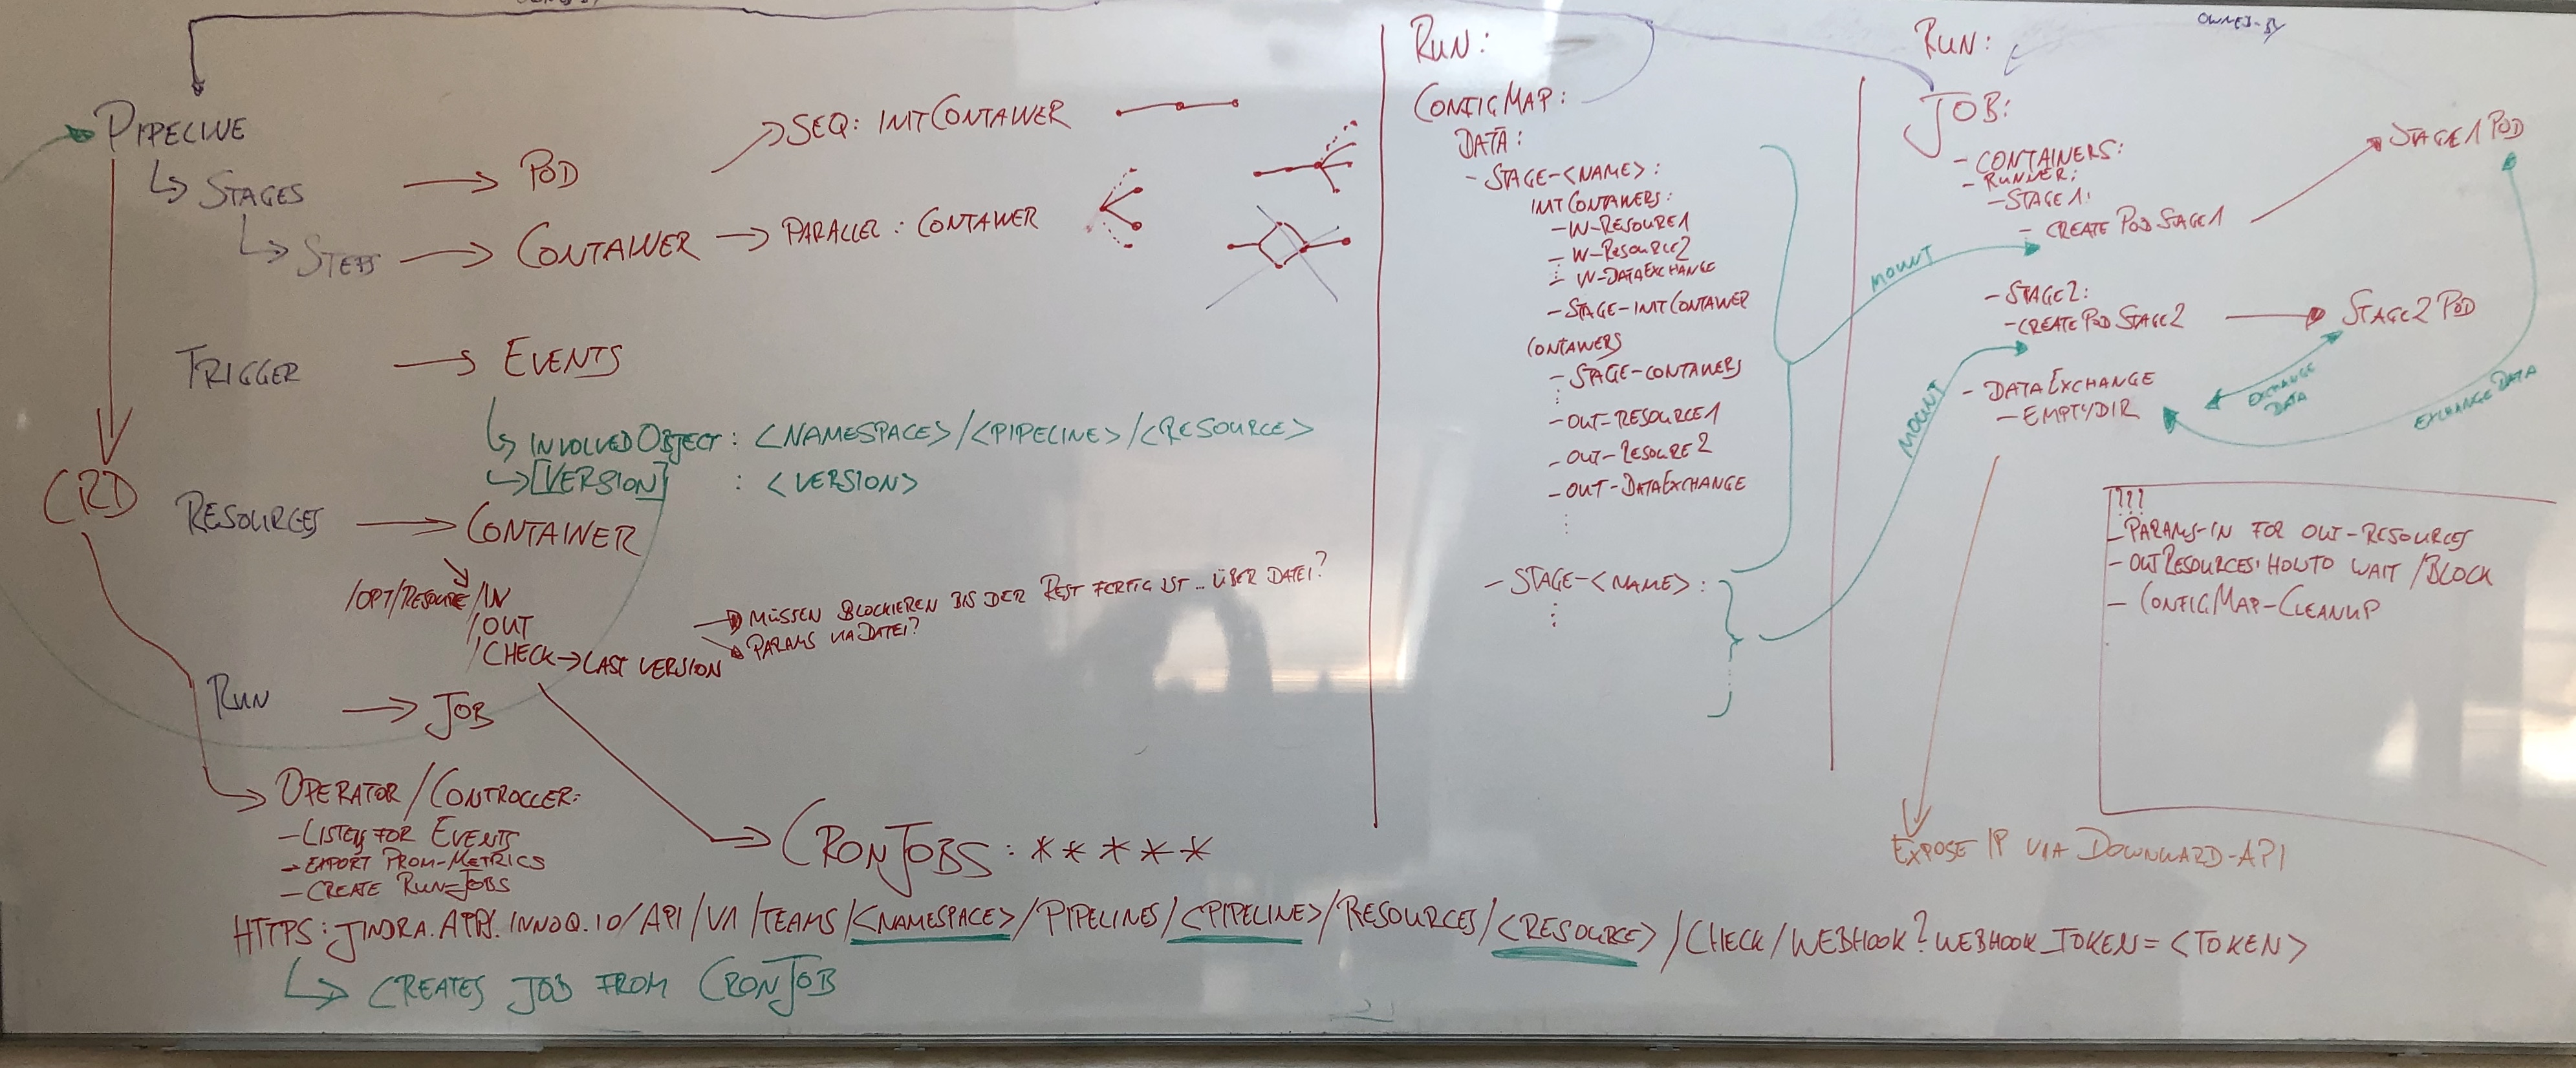 PIPELINE
↳ STAGES → POD
↳ STEPS → CONTAINER → PARALLEL: CONTAINER
SEQ: INITCONTAINER
TRIGGER → EVENTS
↳ INVOLVEDOBJECT: <NAMESPACE>/<PIPELINE>/<RESOURCE>
↳ [VERSION] : <VERSION>
CRD
RESOURCES → CONTAINER
/OPT/RESOURCE/IN
/OUT
/CHECK → LAST VERSION
MÜSSEN BLOCKIEREN BIS DER REST FERTIG IST... ÜBER DATEI?
PARAMS VIA DATEI?
RUN → JOB
OPERATOR/CONTROLLER:
- LISTEN FOR EVENTS
- EXPORT PROM-METRICS
- CREATE RUN-JOBS
CRONJOBS: * * * * *
HTTPS: JINDRA.APPS.INNOQ.IO/API/V1/TEAMS/<NAMESPACE>/PIPELINES/<PIPELINE>/RESOURCES/<RESOURCE>/CHECK/WEBHOOK?WEBHOOK_TOKEN=<TOKEN>
↳ CREATES JOB FROM CRONJOB
RUN:
CONFIGMAP:
DATA:
- STAGE-<NAME>:
INITCONTAINERS:
- IN-RESOURE1
- IN-RESOURCE2
- IN-DATAEXCHANGE
- STAGE-INITCONTAINER
CONTAINERS
- STAGE-CONTAINERS
- OUT-RESOURCE1
- OUT-RESOURE2
- OUT-DATAEXCHANGE
- STAGE-<NAME>:
MOUNT
MOUNT
RUN:
OWNED-BY
JOB:
- CONTAINERS:
- RUNNER:
- STAGE1:
- CREATE POD STAGE1
STAGE1 POD
- STAGE2:
- CREATE POD STAGE2
STAGE2 POD
- DATAEXCHANGE
- EMPTYDIR
EXCHANGE
DATA
EXCHANGE DATA
???
- PARAMS-IN FOR OUT-RESOURCES
- OUTRESOURCES: HOWTO WAIT/BLOCK
- CONFIGMAP-CLEANUP
EXPOSE IP VIA DOWNWARD-API